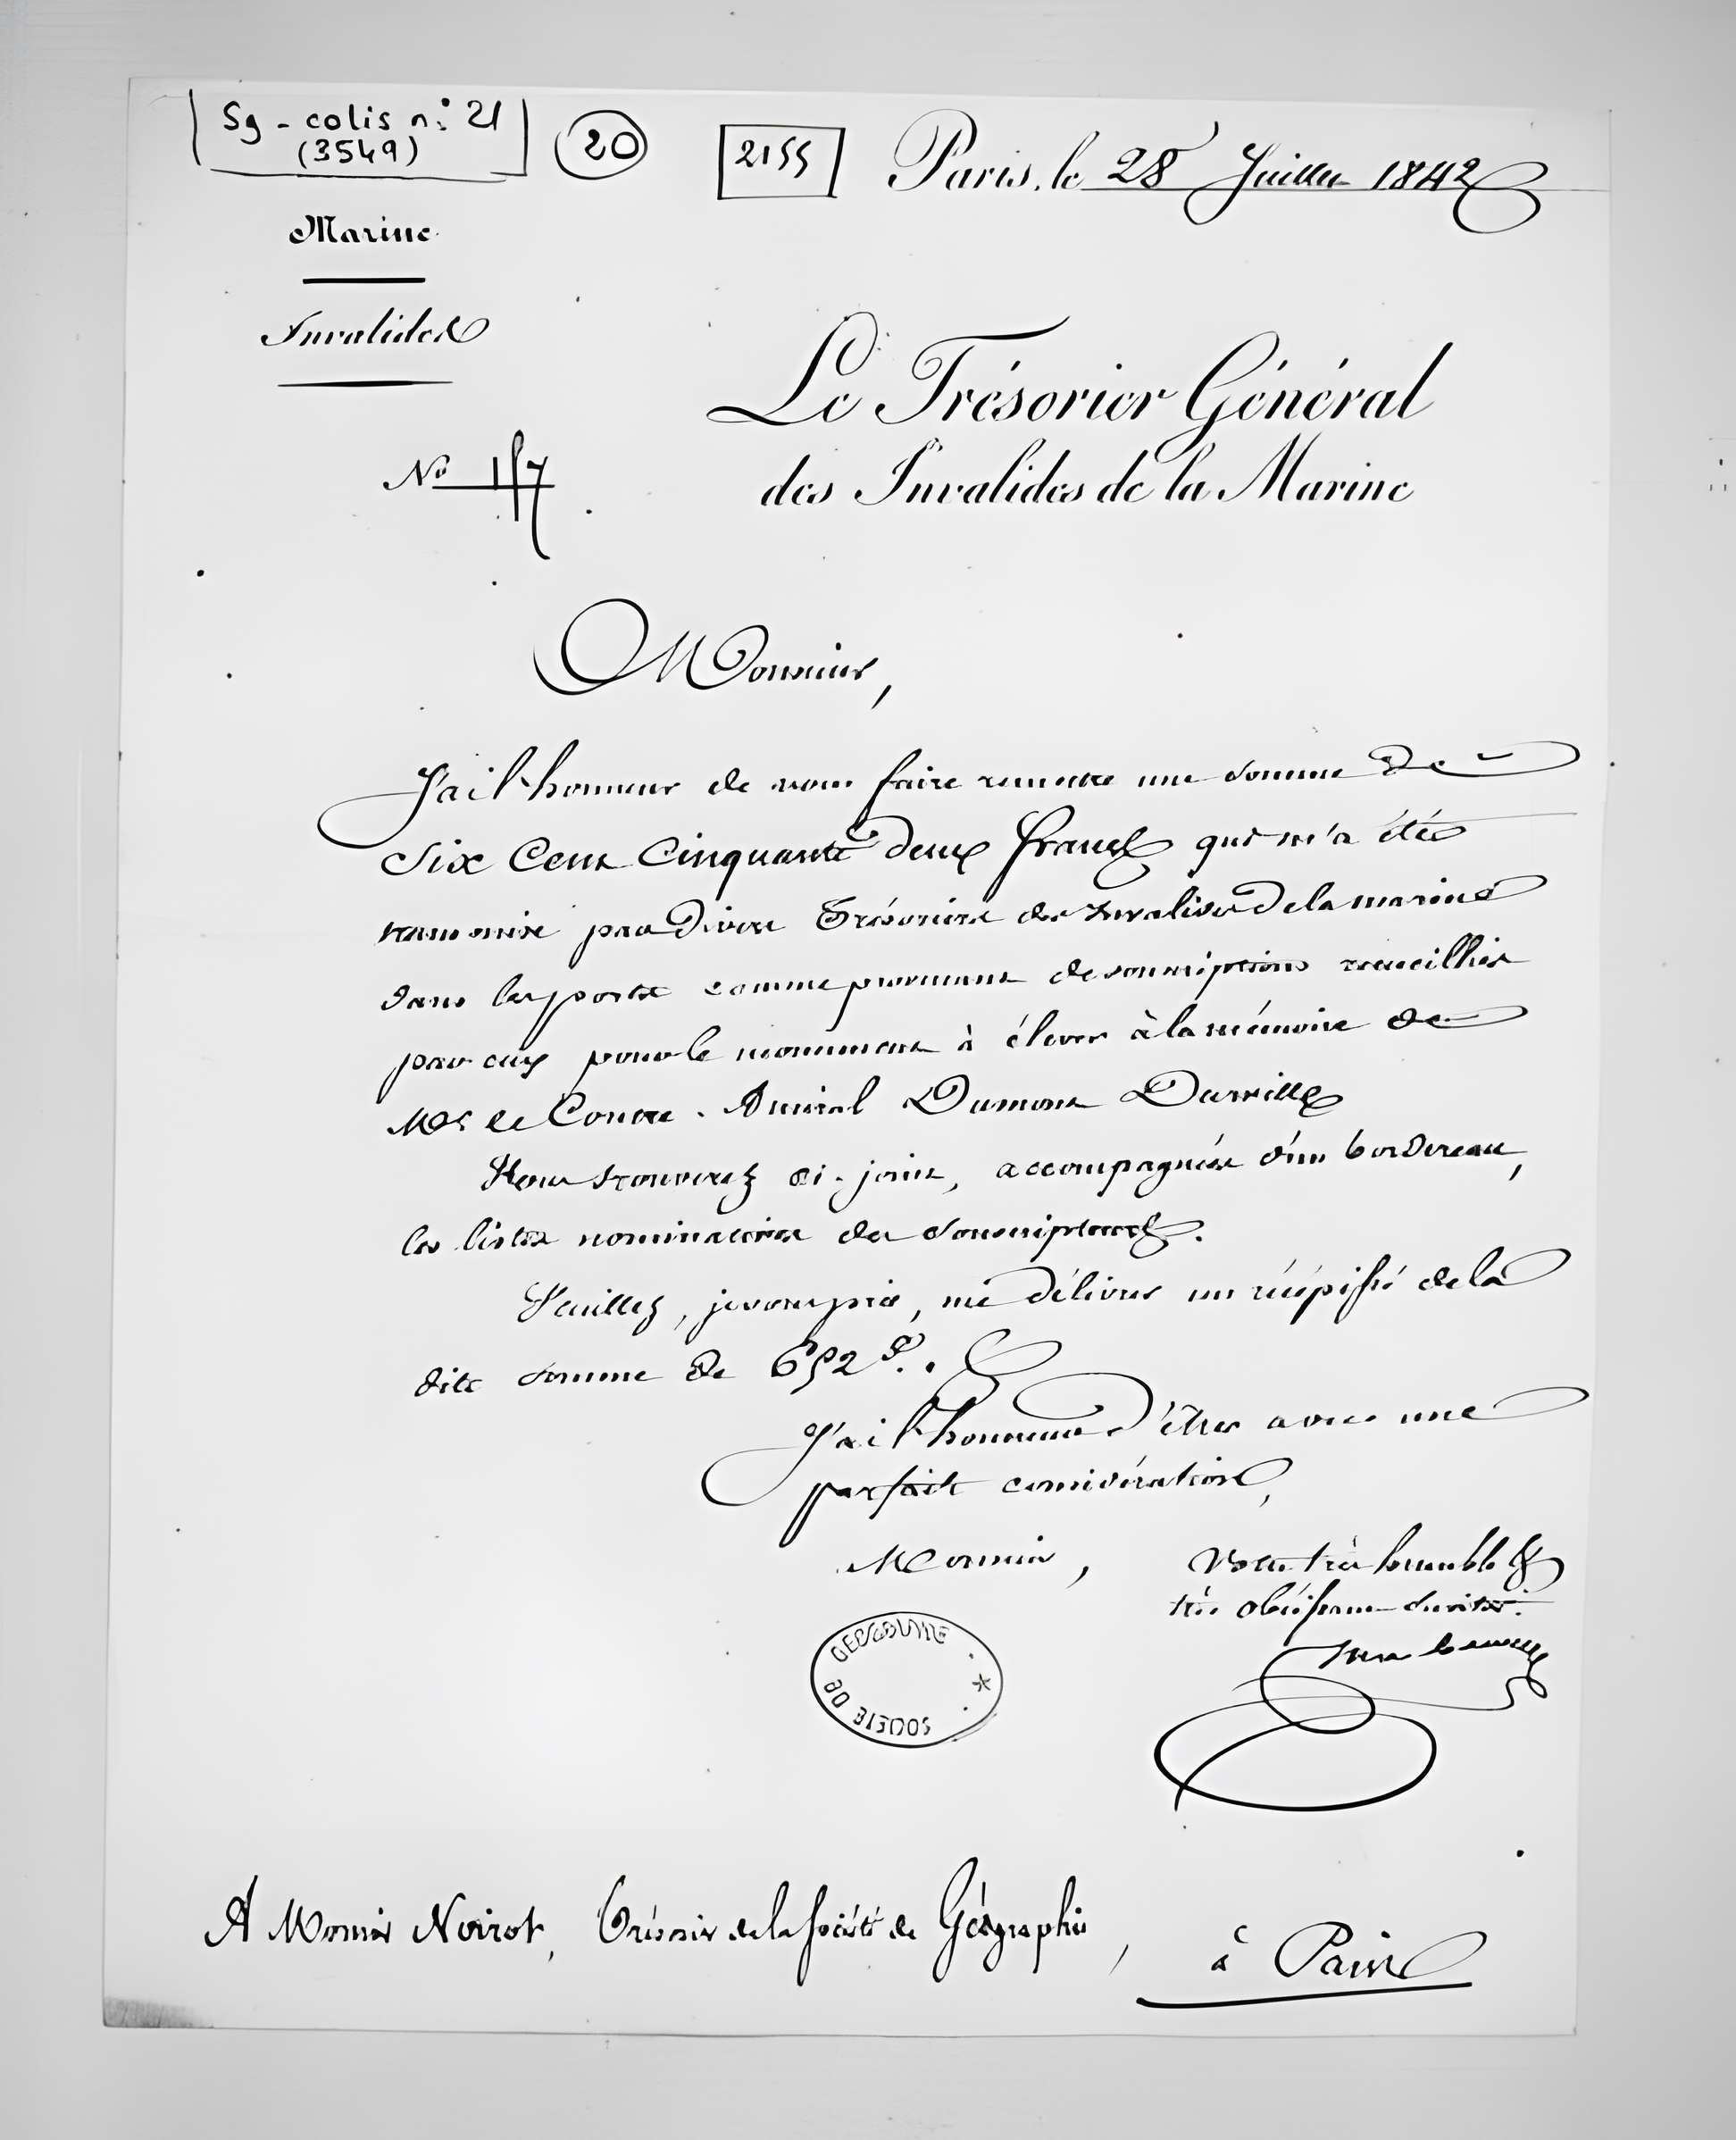 Sg - colis n° 21
(3549)
20
2155
Paris, le 28 Juillet 1842
Marine
Invalides
Le Trésorier Général
des Invalides de la Marine
No 157
Monsieur,
J'ai l'honneur de vous faire remettre une somme de
Six Cent Cinquante deux francs qui m'a été
transmise par divers Trésoriers des Invalides de la marine
dans les ports comme provenant de souscriptions recueillies
par eux pour le monument à élever à la mémoire de
Mr le Contre-Amiral Dumont Durville
Vous trouverez ci-joint, accompagnées d'un bordereau,
les listes nominatives des souscripteurs.
Veuillez, je vous prie, me délivrer un récépissé de la
dite somme de 652 f.
J'ai l'honneur d'être avec une
parfaite considération,
Monsieur,
Votre très humble &
très obéissant serviteur.
SOCIETE DE GEOGRAPHIE
A Monsieur Noirot, Trésorier de la société de Géographie,
à Paris